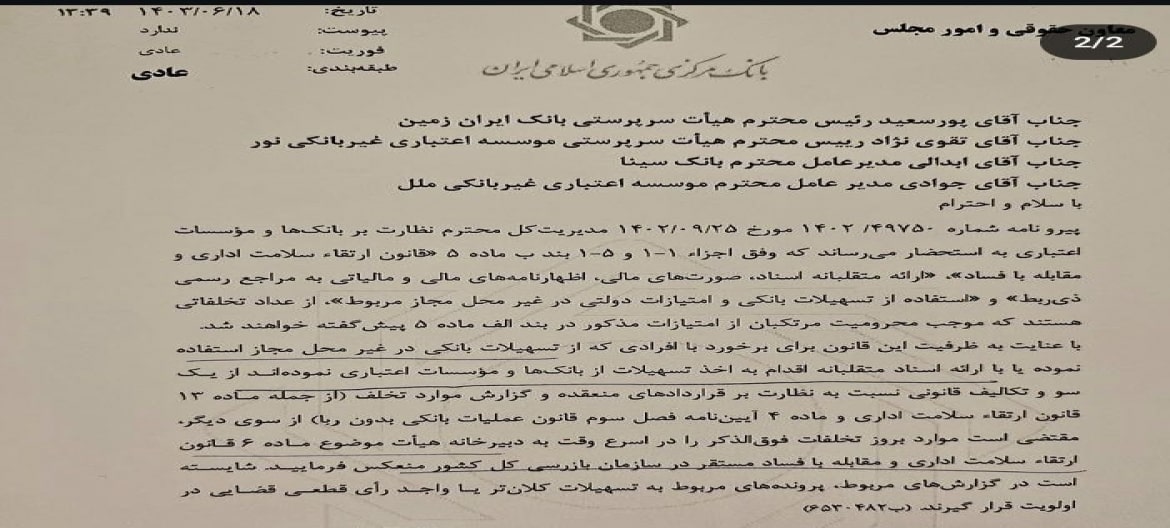 تاریخ: ۱۴۰۳/۰۶/۱۸ ۱۳:۳۹
پیوست: ندارد
فوریت: عادی
طبقه‌بندی: عادی
معاون حقوقی و امور مجلس
2/2
بانک مرکزی جمهوری اسلامی ایران
جناب آقای پورسعید رئیس محترم هیأت سرپرستی بانک ایران زمین
جناب آقای تقوی نژاد رییس محترم هیأت سرپرستی موسسه اعتباری غیربانکی نور
جناب آقای ابدالی مدیرعامل محترم بانک سینا
جناب آقای جوادی مدیر عامل محترم موسسه اعتباری غیربانکی ملل
با سلام و احترام
پیرو نامه شماره ۱۴۰۲/۴۹۷۵۰ مورخ ۱۴۰۲/۰۹/۲۵ مدیریت‌کل محترم نظارت بر بانک‌ها و مؤسسات
اعتباری به استحضار می‌رساند که وفق اجزاء ۱-۱ و ۵-۱ بند ب ماده ۵ «قانون ارتقاء سلامت اداری و
مقابله با فساد»، «ارائه متقلبانه اسناد، صورت‌های مالی، اظهارنامه‌های مالی و مالیاتی به مراجع رسمی
ذی‌ربط» و «استفاده از تسهیلات بانکی و امتیازات دولتی در غیر محل مجاز مربوط»، از عداد تخلفاتی
هستند که موجب محرومیت مرتکبان از امتیازات مذکور در بند الف ماده ۵ پیش‌گفته خواهند شد.
با عنایت به ظرفیت این قانون برای برخورد با افرادی که از تسهیلات بانکی در غیر محل مجاز استفاده
نموده یا با ارائه اسناد متقلبانه اقدام به اخذ تسهیلات از بانک‌ها و مؤسسات اعتباری نموده‌اند از یک
سو و تکالیف قانونی نسبت به نظارت بر قراردادهای منعقده و گزارش موارد تخلف (از جمله ماده ۱۳
قانون ارتقاء سلامت اداری و ماده ۴ آیین‌نامه فصل سوم قانون عملیات بانکی بدون ربا) از سوی دیگر،
مقتضی است موارد بروز تخلفات فوق‌الذکر را در اسرع وقت به دبیرخانه هیأت موضوع ماده ۶ قانون
ارتقاء سلامت اداری و مقابله با فساد مستقر در سازمان بازرسی کل کشور منعکس فرمایید. شایسته
است در گزارش‌های مربوط، پرونده‌های مربوط به تسهیلات کلان‌تر یا واجد رأی قطعی قضایی در
اولویت قرار گیرند. (ب۶۵۳۰۴۸۲)